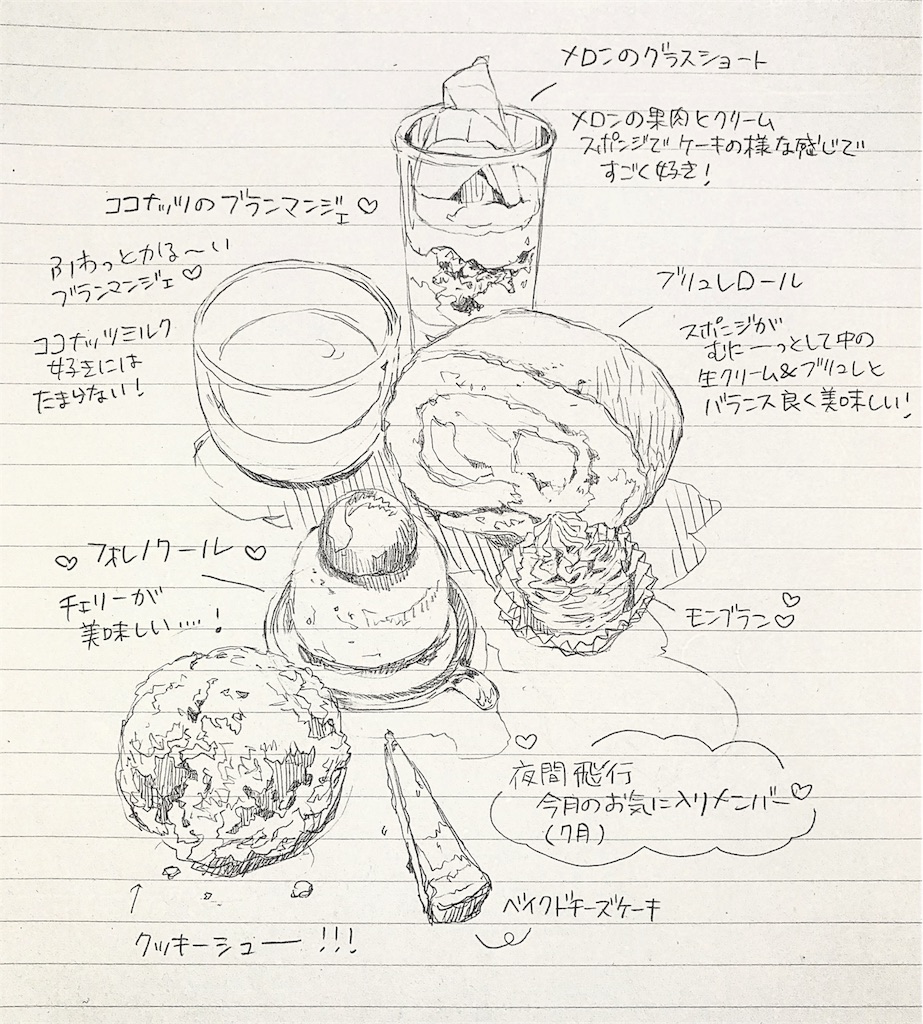 メロンのグラスショート
メロンの果肉とクリーム
スポンジでケーキの様な感じで
すごく好き!
ココナッツのブランマンジェ♡
ふわっとかる〜い
ブランマンジェ♡
ココナッツミルク
好きには
たまらない!
ブリュレロール
スポンジが
むにーっとして中の
生クリーム&ブリュレと
バランス良く美味しい!
♡フォレノワール♡
チェリーが
美味しい....!
モンブラン♡♡
夜間飛行
今月のお気に入りメンバー♡
(7月)
ベイクドチーズケーキ
↑
クッキーシュー!!!